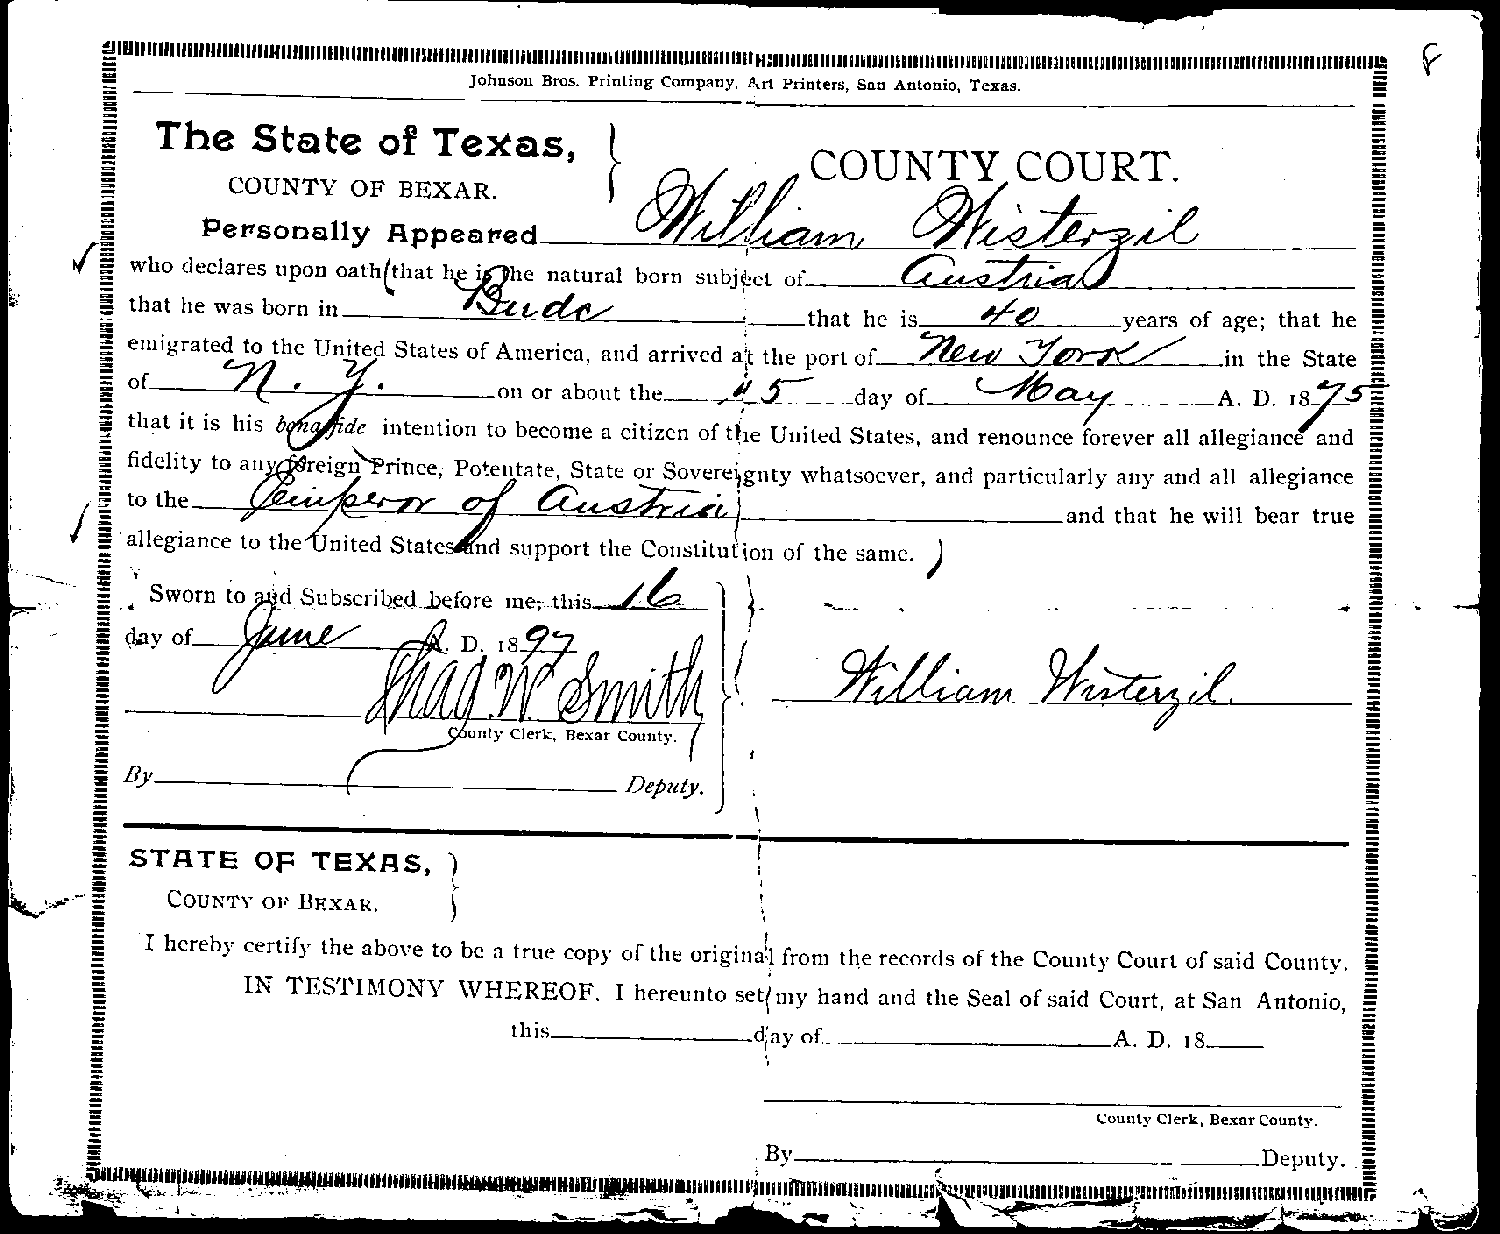 Johnson Bros. Printing Company, Art Printers, San Antonio, Texas.
The State of Texas,
COUNTY OF BEXAR.
COUNTY COURT.
Personally Appeared William Wisterzil
who declares upon oath that he is the natural born subject of Austria
that he was born in Bude that he is 40 years of age; that he
emigrated to the United States of America, and arrived at the port of New York in the State
of N. Y. on or about the 15 day of May A. D. 1875
that it is his bona fide intention to become a citizen of the United States, and renounce forever all allegiance and
fidelity to any foreign Prince, Potentate, State or Sovereignty whatsoever, and particularly any and all allegiance
to the Emperor of Austria and that he will bear true
allegiance to the United States and support the Constitution of the same.
Sworn to and Subscribed before me, this 16
day of June A. D. 1897
Thad W. Smith
County Clerk, Bexar County.
By Deputy.
William Wisterzil.
STATE OF TEXAS,
COUNTY OF BEXAR.
I hereby certify the above to be a true copy of the original from the records of the County Court of said County.
IN TESTIMONY WHEREOF, I hereunto set my hand and the Seal of said Court, at San Antonio,
this day of A. D. 18
County Clerk, Bexar County.
By Deputy.